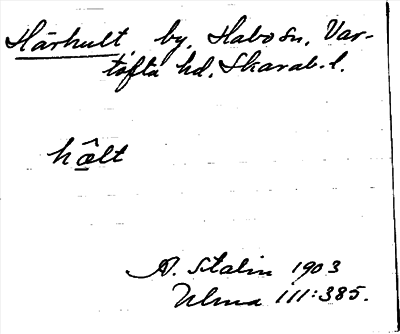 Härhult by, Habo sn, Var-
tofta hd, Skarab. l.
hâ̱lt
A. Stalin 1903
Ulma 111:385.